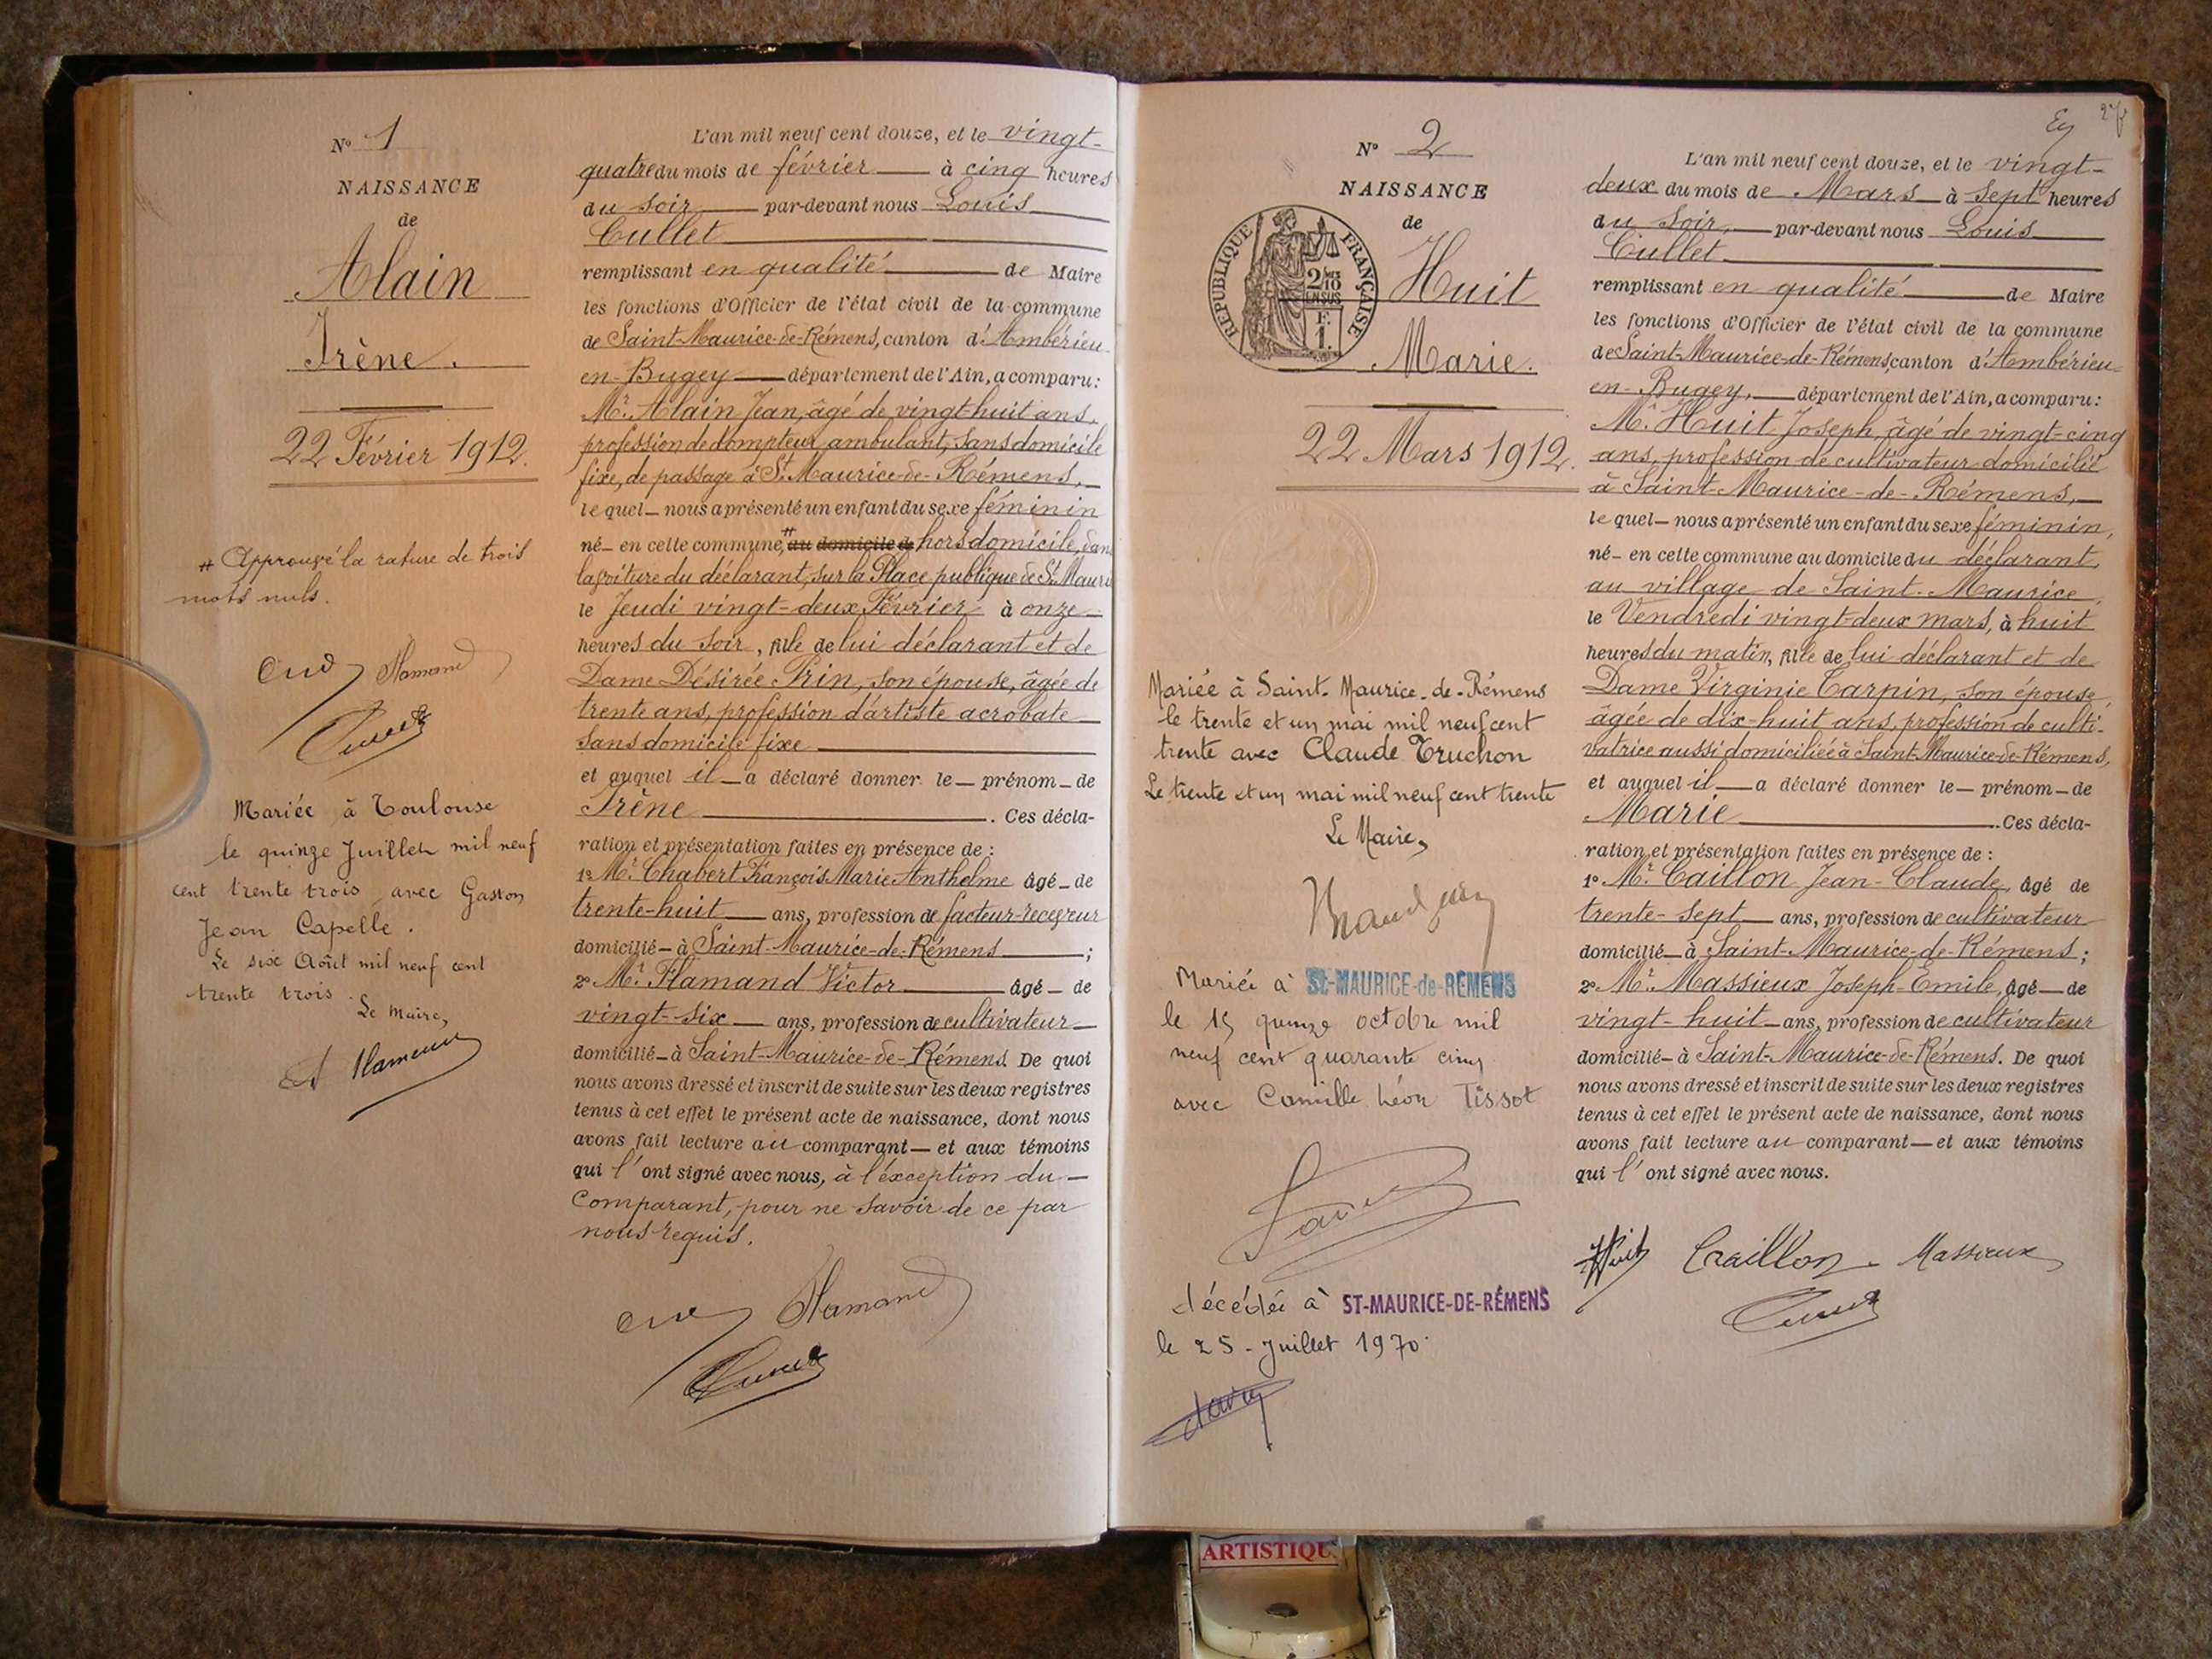 N° 1
NAISSANCE
de
Alain
Irène.
22 Février 1912.
# Approuvé la rature de trois
mots nuls.
Flamand
Cullet
Mariée à Toulouse
le quinze Juillet mil neuf
cent trente trois avec Gaston
Jean Capelle.
Le six Août mil neuf cent
trente trois.
Le Maire,
L'an mil neuf cent douze, et le vingt-
quatre du mois de février à cinq heures
du soir par-devant nous Louis
Cullet
remplissant en qualité de Maire
les fonctions d'Officier de l'état civil de la commune
de Saint-Maurice-de-Rémens, canton d'Ambérieu-
en-Bugey département de l'Ain, a comparu :
Mr. Alain Jean, âgé de vingt-huit ans,
profession de dompteur ambulant, sans domicile
fixe, de passage à St. Maurice-de-Rémens,
lequel nous a présenté un enfant du sexe féminin
né en cette commune, # au domicile de hors domicile, dans
la voiture du déclarant, sur la Place publique de St. Mauri
le Jeudi vingt-deux Février à onze
heures du soir, fille de lui déclarant et de
Dame Désirée Prin, son épouse, âgée de
trente ans, profession d'artiste acrobate
sans domicile fixe
et auquel il a déclaré donner le prénom de
Irène. Ces décla-
ration et présentation faites en présence de :
1° Mr. Chabert François Marie Anthelme âgé de
trente-huit ans, profession de facteur-receveur
domicilié à Saint-Maurice-de-Rémens ;
2° Mr. Flamand Victor âgé de
vingt-six ans, profession de cultivateur
domicilié à Saint-Maurice-de-Rémens. De quoi
nous avons dressé et inscrit de suite sur les deux registres
tenus à cet effet le présent acte de naissance, dont nous
avons fait lecture au comparant et aux témoins
qui l'ont signé avec nous, à l'éxception du
Comparant, pour ne savoir de ce par
nous requis.
Flamand
Cullet
27
N° 2
NAISSANCE
de
RÉPUBLIQUE FRANÇAISE
2/10
EN SUS
1 F.
Huit
Marie.
22 Mars 1912.
Mariée à Saint-Maurice-de-Rémens
le trente et un mai mil neuf cent
trente avec Claude Truchon
Le trente et un mai mil neuf cent trente
Le Maire,
Mariée à ST-MAURICE-de-REMENS
le 15 quinze octobre mil
neuf cent quarante cinq
avec Camille Léon Tissot
décédée à ST-MAURICE-DE-RÉMENS
le 25 - Juillet 1970.
L'an mil neuf cent douze, et le vingt-
deux du mois de Mars à sept heures
du soir, par-devant nous Louis
Cullet
remplissant en qualité de Maire
les fonctions d'Officier de l'état civil de la commune
de Saint-Maurice-de-Rémens, canton d'Ambérieu-
en-Bugey, département de l'Ain, a comparu :
Mr. Huit Joseph, âgé de vingt-cinq
ans, profession de cultivateur domicilié
à Saint-Maurice-de-Rémens,
lequel nous a présenté un enfant du sexe féminin,
né en cette commune au domicile du déclarant,
au village de Saint-Maurice,
le Vendredi vingt-deux mars, à huit
heures du matin, fille de lui déclarant et de
Dame Virginie Carpin, son épouse,
âgée de dix-huit ans, profession de culti-
vatrice aussi domiciliée à Saint-Maurice-de-Rémens,
et auquel il a déclaré donner le prénom de
Marie. Ces décla-
ration et présentation faites en présence de :
1° Mr. Caillon Jean-Claude, âgé de
trente-sept ans, profession de cultivateur
domicilié à Saint-Maurice-de-Rémens ;
2° Mr. Massieux Joseph-Emile, âgé de
vingt-huit ans, profession de cultivateur
domicilié à Saint-Maurice-de-Rémens. De quoi
nous avons dressé et inscrit de suite sur les deux registres
tenus à cet effet le présent acte de naissance, dont nous
avons fait lecture au comparant et aux témoins
qui l'ont signé avec nous.
Huit Caillon Massieux
Cullet
ARTISTIQU